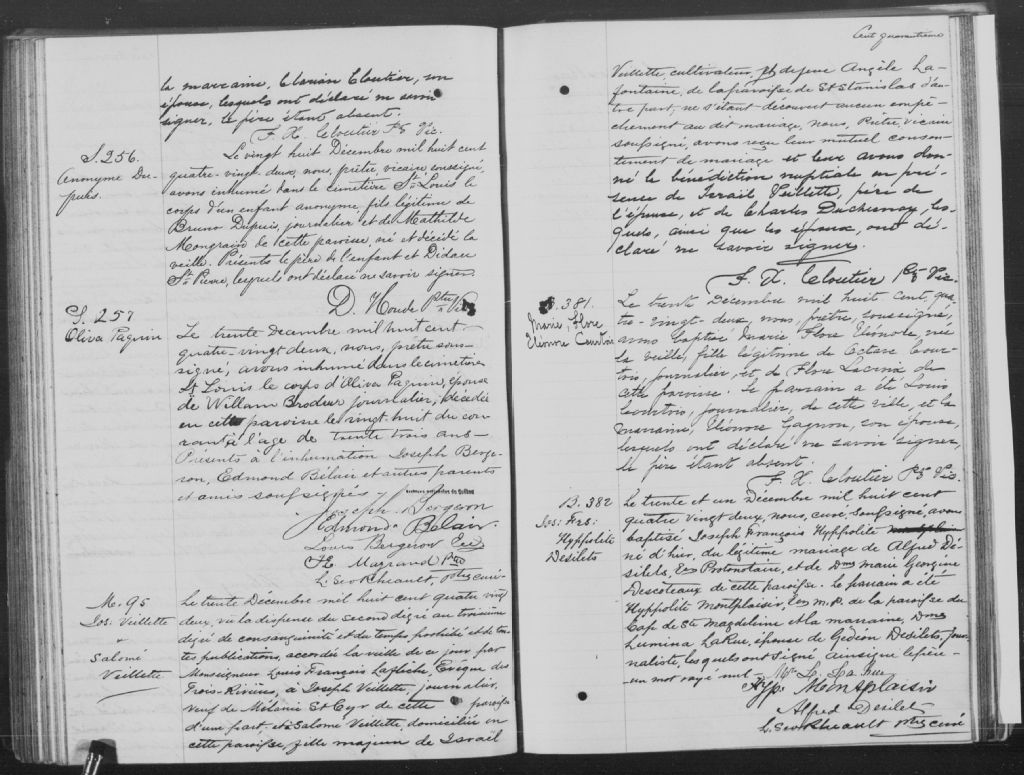 la marraine, Clarian Cloutier, son
épouse, lesquels ont déclaré ne savoir
signer, le père étant absent.
F. X. Cloutier Ptre Vic.
S. 256.
Anonyme Du-
puis.
Le vingt huit Décembre mil huit cent
quatre-vingt-deux, nous, prêtre, vicaire soussigné,
avons inhumé dans le cimetière St Louis le
corps d'un enfant anonyme, fils légitime de
Bruno Dupuis, journalier et de Mathilde
Mongrain de cette paroisse, né et décédé la
veille. Présents le père de l'enfant et Didace
St Pierre, lesquels ont déclaré ne savoir signer
D. Houde Ptre Vic
S. 257
Oliva Paquin
Le trente Decembre mil huit cent
quatre-vingt deux, nous, prêtre sous-
signé, avons inhumé dans le cimetière
St Louis le corps d'Oliva Paquin, épouse
de William Brodeur journalier, décédée
en cette paroisse le vingt-huit du cou-
rant à l'age de trente trois ans—
Présents à l'inhumation Joseph Berge-
ron, Edmond Bélair et autres parents
et amis soussignés
Joseph Bergeron
Edmond Belair
Louis Bergeron
Magnand
L. Sev. Rheault, ptre curé
M. 95
Jos. Veillette
&
Salomé
Veillette
Le trente Décembre mil huit cent quatre vingt
deux, vu la dispense du second degré au troisième
degré de consanguinité et de temps prohibé et de tou-
tes publications, accordée la veille de ce jour par
Monseigneur Louis François Laflèche, Evêque des
Trois-Rivières, à Joseph Veillette, journalier,
veuf de Mélanie St Cyr de cette paroisse
d'une part, et à Salomé Veillette, domiciliée en
cette paroisse, fille majeure de Israël
Cent quarantième
Veillette, cultivateur, et de feue Angèle La-
fontaine, de la paroisse de St Stanislas d'au-
tre part; ne s'étant découvert aucun empê-
chement au dit mariage, nous, Prêtre, vicaire
soussigné, avons reçu leur mutuel consen-
tement de mariage et leur avons don-
né la bénédiction nuptiale en pré-
sence de Israël Veillette, père de
l'épouse, et de Charles Duchesnay, les-
quels, ainsi que les époux, ont dé-
claré ne savoir signer.
F. X. Cloutier Ptre Vic.
B. 381.
Marie, Flore
Eléonore Courtois
Le trente Décembre mil huit cent, qua-
tre-vingt-deux, nous, prêtre, soussigné,
avons baptisé Marie Flore Eléonore née
la veille, fille légitime de Octave Cour-
tois, journalier, et de Flore Lacroix de
cette paroisse. Le parrain a été Louis
Courtois, journalier, de cette ville, et la
marraine, Eléonore Gagnon, son épouse,
lesquels ont déclaré ne savoir signer,
le père étant absent.
F. X. Cloutier Ptre Vic.
B. 382
Jos: Frs:
Hyppolite
Desilets
Le trente et un Décembre mil huit cent
quatre vingt deux, nous, curé, soussigné, avons
baptisé Joseph François Hyppolite
né d'hier, du légitime mariage de Alfred Dé-
silets, Ecr Protonotaire, et de Dme Marie Georgine
Descoteaux de cette paroisse. Le parrain a été
Hyppolite Montplaisir, Ecr M.P. de la paroisse du
Cap de Ste Magdeleine et la marraine, Dme
Lumina LaRue, épouse de Gédéon Desilets, jour-
naliste, lesquels ont signé ainsi que le père—
un mot rayé nul—
La Rue
Hyp. Montplaisir
Alfred Desilets
L. Sev. Rheault ptre curé